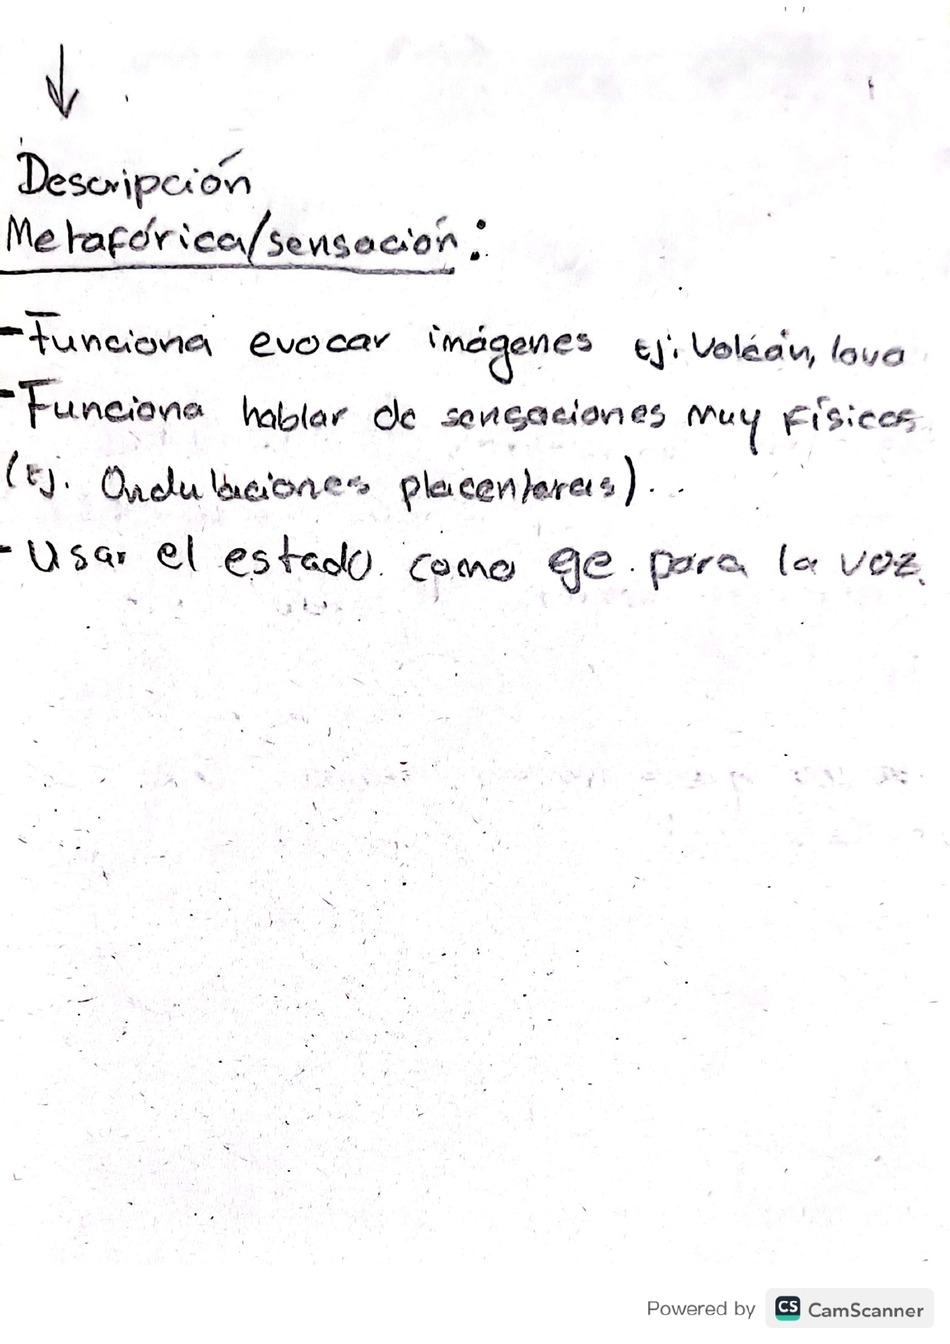 Descripción
Metafórica/sensación:
- Funciona evocar imágenes Ej: Volcán, lava
- Funciona hablar de sensaciones muy físicas
(Ej. Ondulaciones placentaras)..
- Usar el estado como eje para la voz.
Powered by CS CamScanner